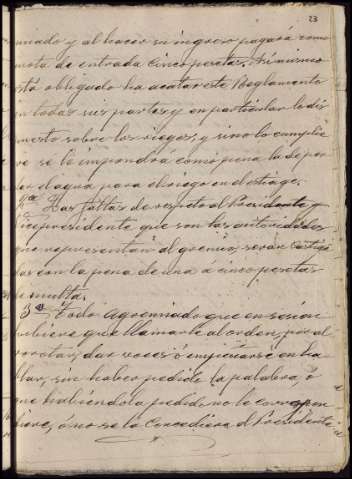 23
miado y al hacer su ingreso pagará como
nota de entrada cinco pesetas. Asimismo
está obligado ha acatar este Reglamento
en todas sus partes y en particular lo dis
puesto sobre los riegos, y sino lo cumplie
re se le impondrá como pena la de per
der el agua para el riego en el estiage.
Las faltas de respeto al Presidente y
Vicepresidente que son las autoridades
que representan al gremio, serán castiga
das con la pena de una a cinco pesetas
de multa.
3ª Todo agremiado que en sesión
hubiere que llamarle al orden, por al
borotar, dar voces ó empeñarse en ha
blar, sin haber pedido la palabra, ó
que habiéndola pedido no le correspon
diere, ó no se la concediera el Presidente